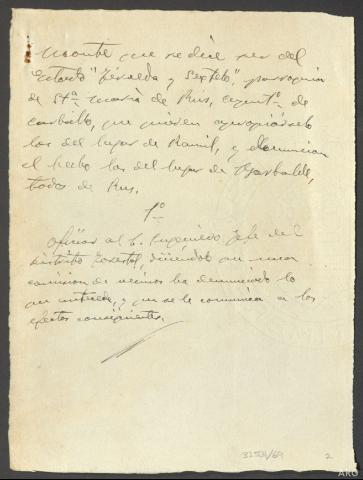 Monte que se dice ser del
Estado "Peralda y Septeto", parroquia
de Stª María de Rus, ayuntº de
Carballo, que quieren apropiárselo
los del lugar de Ramil, y denuncian
el hecho los del lugar de
todos de Rus.
1º
Oficiar al S. Ingeniero Jefe del
Distrito Forestal, diciéndole que una
comisión de vecinos ha denunciado lo
que antecede, y que se le comunica a los
efectos consiguientes.
32531/69
2
ARG